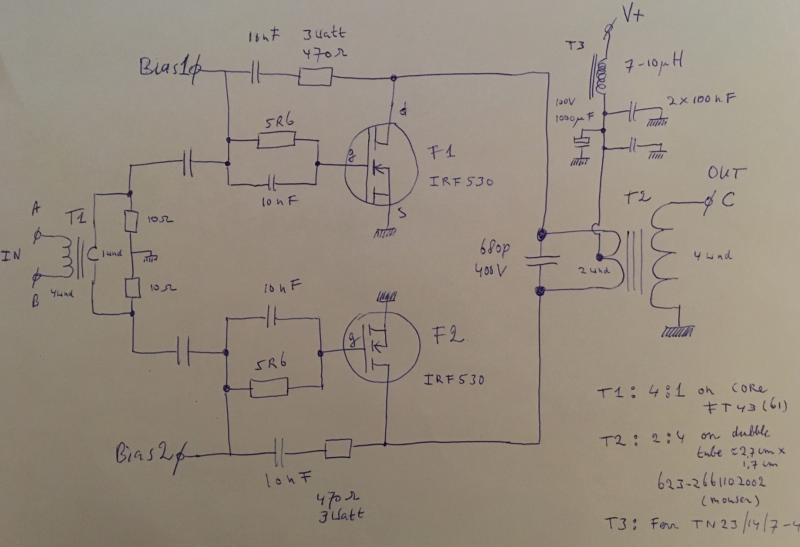 V+
T3
7-10µH
100V
1000µF
2x100nF
Bias1
10nF
3Watt
470Ω
5R6
10nF
d
g
S
F1
IRF530
A
T1
IN
B
4wnd
1wnd
10Ω
10Ω
680p
400V
T2
2wnd
4wnd
OUT
C
10nF
5R6
g
F2
IRF530
Bias2
10nF
470Ω
3Watt
T1: 4:1 on CORE
FT43(61)
T2: 2:4 on dubble
tube ≈2,7cm x
1,7cm
623-2661102002
(mouser)
T3: Ferr TN23/14/7-4